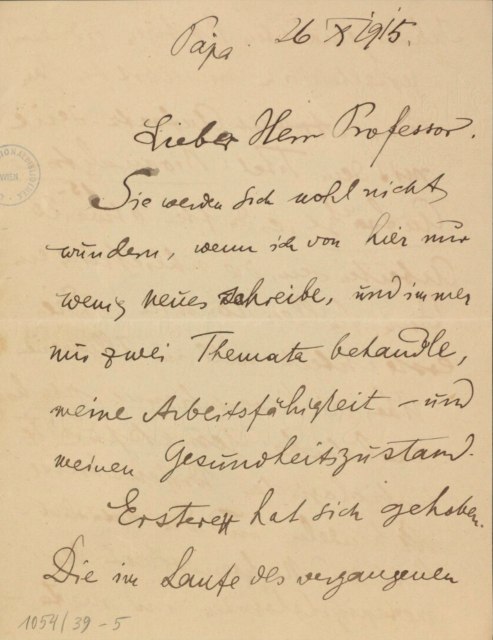 Pápa 26 X 1915.
Lieber Herr Professor.
Sie werden sich wohl nicht
wundern, wenn ich von hier nur
wenig neues schreibe, und immer
nur zwei Themata behandle,
meine Arbeitsfähigkeit – und
meinen Gesundheitszustand.
Erstere hat sich gehoben.
Die im Laufe des vergangenen
WIEN
1054/39-5